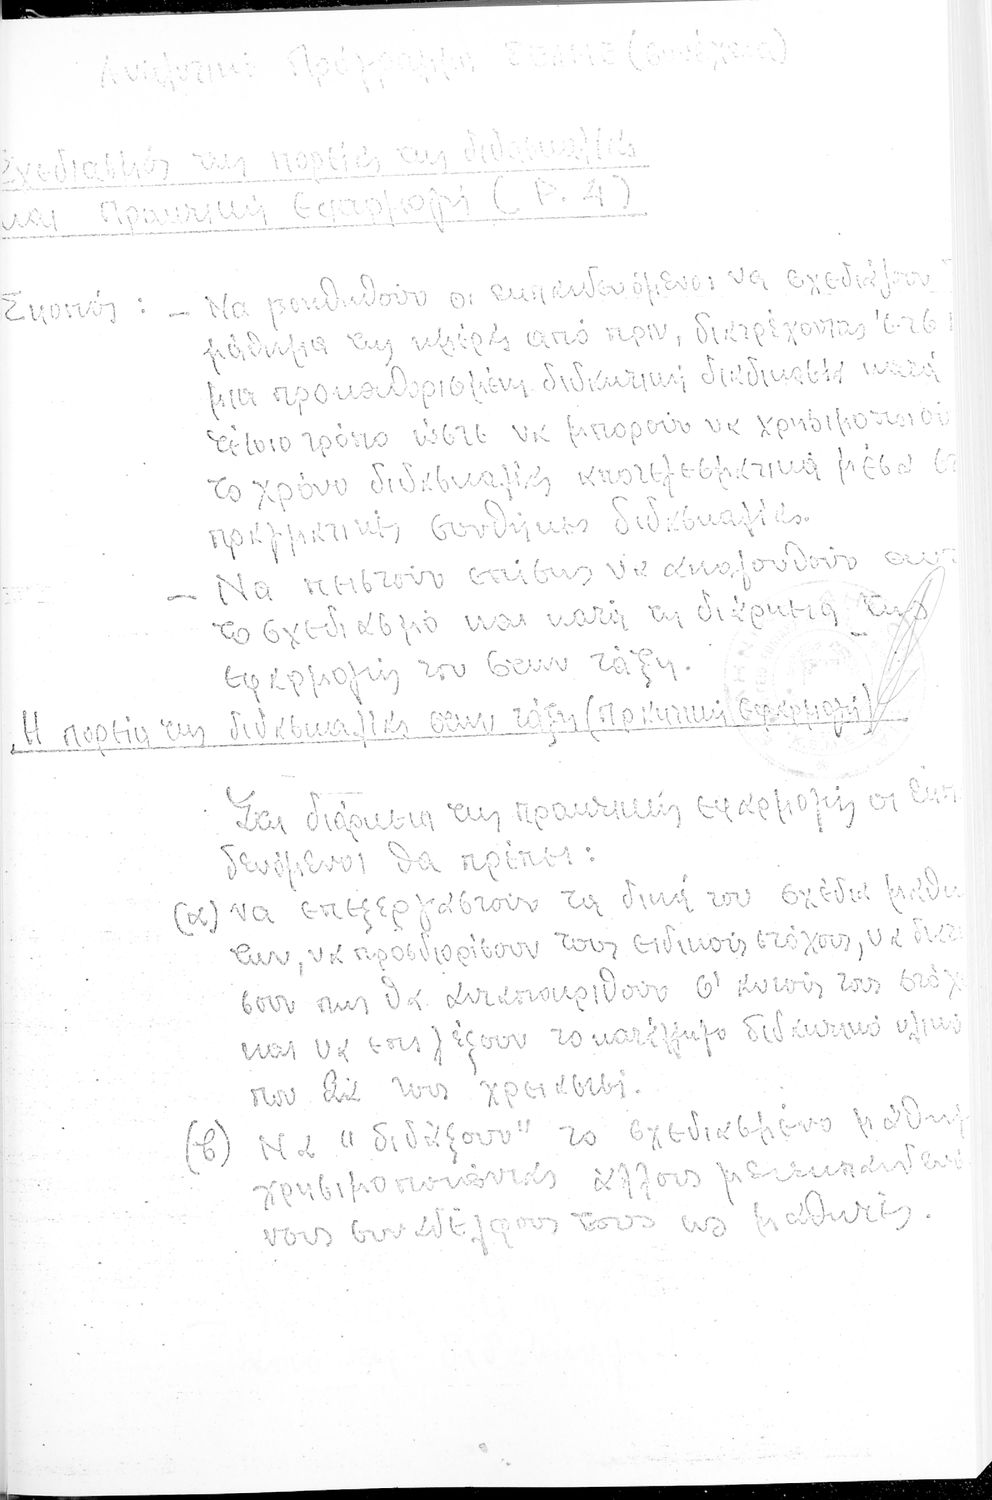 Αναλυτικό Πρόγραμμα ΣΕΛΜΕ (συνέχεια)
Σχεδιασμός της πορείας της διδασκαλίας
και Πρακτική Εφαρμογή (P. 4)
Σκοπός : – Να βοηθηθούν οι εκπαιδευόμενοι να σχεδιάζουν
μάθημα της ημέρας από πριν, διατρέχοντας έτσι
μια προκαθορισμένη διδακτική διαδικασία κατά
τέτοιο τρόπο ώστε να μπορούν να χρησιμοποιού
το χρόνο διδασκαλίας αποτελεσματικά μέσα στ
πραγματικές συνθήκες διδασκαλίας.
– Να πειστούν επίσης να ακολουθούν αυτ
το σχεδιασμό και κατά τη διάρκεια της
εφαρμογής του στην τάξη.
Η πορεία της διδασκαλίας στην τάξη (Πρακτική Εφαρμογή)
Στη διάρκεια της πρακτικής εφαρμογής οι Εκπ
δευόμενοι θα πρέπει :
(α) να επεξεργαστούν τα δικά του σχέδια μαθη
των, να προσδιορίσουν τους ειδικούς στόχους, να
σουν πως θα ανταποκριθούν σ' αυτούς τους στόχ
και να επιλέξουν το κατάλληλο διδακτικό υλικό
που θα τους χρειαστεί.
(β) Να "διδάξουν" το σχεδιασμένο μάθημ
χρησιμοποιώντας άλλους μετεκπαιδευό
νους συναδέλφους τους ως μαθητές.